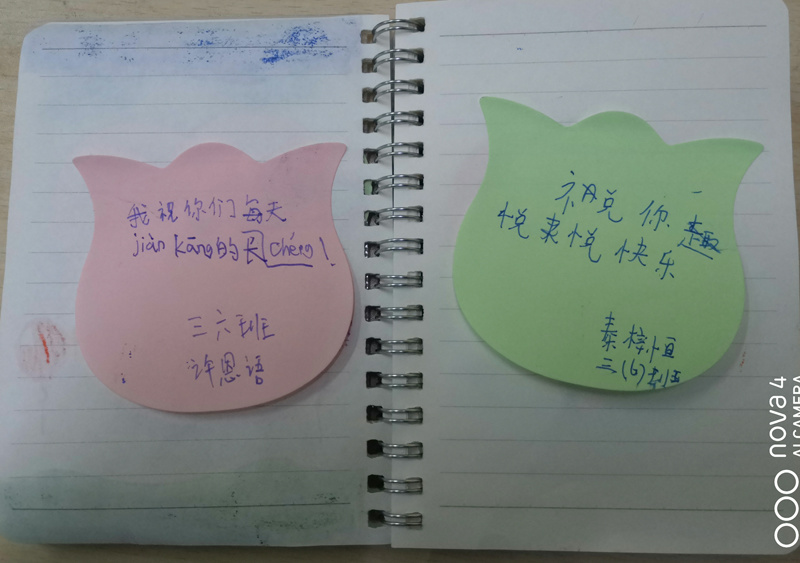 我祝你们每天
jiàn kāng的长chéng!
三六班
许恩语
祝你
悦来悦快乐
趣
秦梓恒
三(6)班
nova 4
AI CAMERA